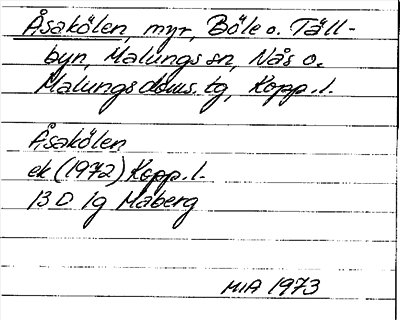 Åsakölen, myr, Böle o. Täll-
byn, Malungs sn, Nås o.
Malungs dms. tg, Kopp. l.
Åsakölen
ek (1972) Kopp. l.
13 D 1g Maberg
MIA 1973